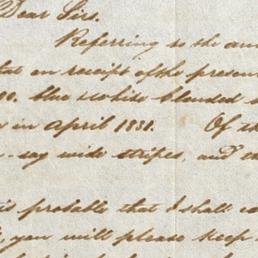 Dear Sirs.
Referring to the
on receipt of the presen
00. blue & white blended s
in April 1831. Of th
say wide stripes, and
is probable that I shall co
you will please keep